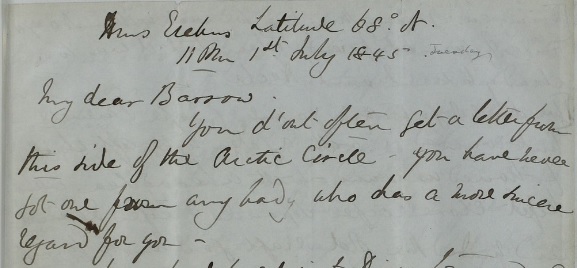 HMS Erebus Latitude 68° N.
11 PM 1st July 1845 Tuesday
My dear Barrow.
You d'ont often get a letter from
this side of the Arctic Circle - you have never
got one from any body who has a more sincere
regard for you -